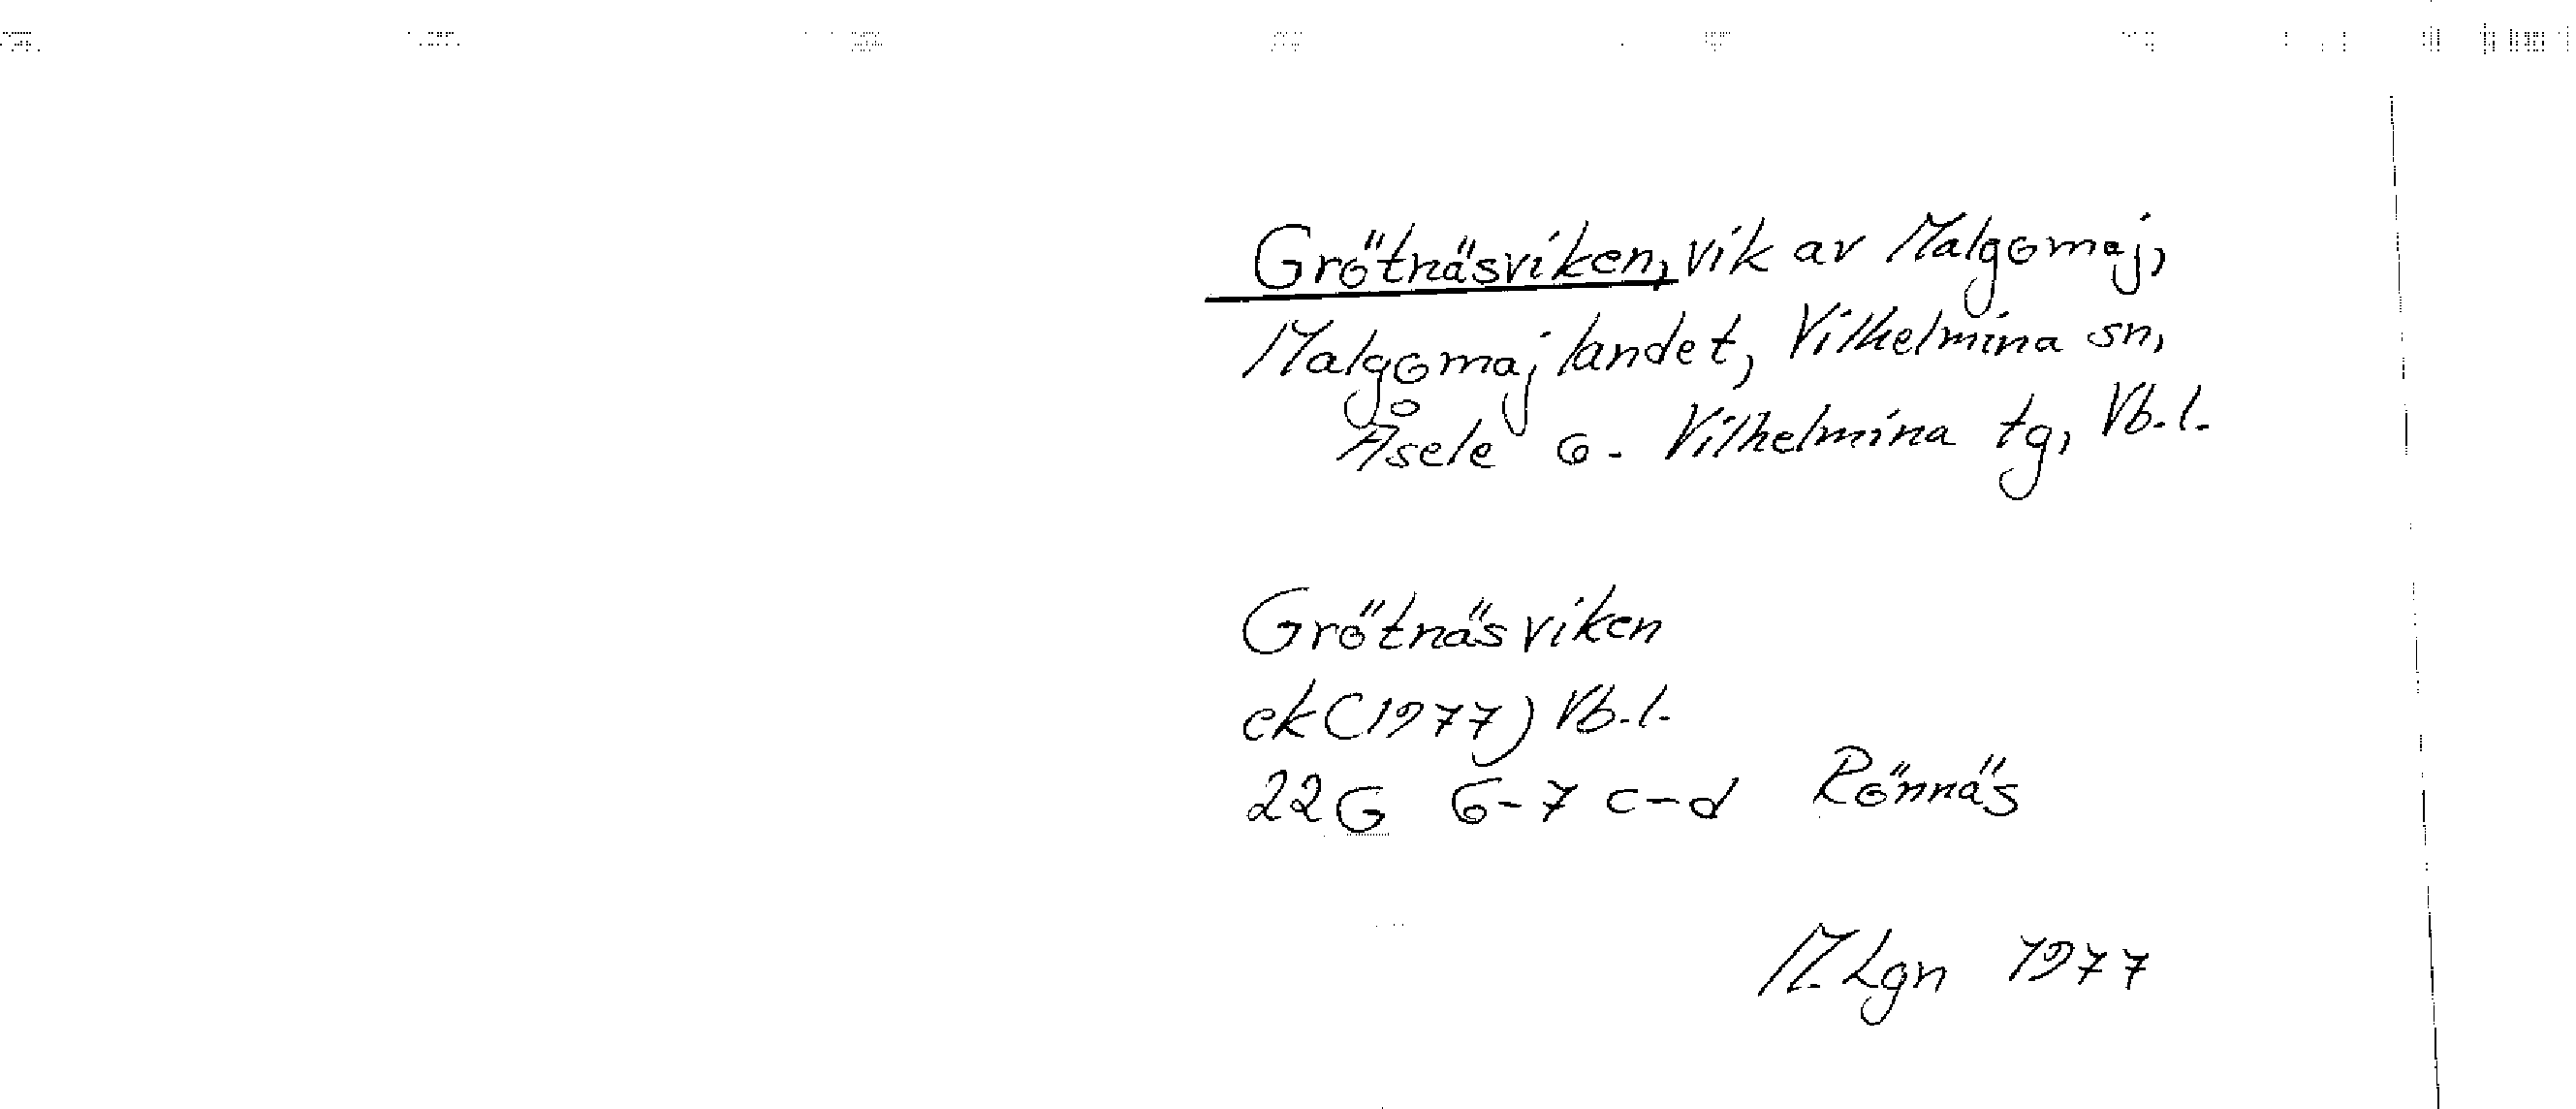 Grötnäsviken, vik av Malgomaj,
Malgomajlandet, Vilhelmina sn,
Åsele o. Vilhelmina tg, Vb.l.
Grötnäsviken
ek (1977) Vb.l.
22G 6-7 c-d Rönnäs
M. Lgn 1977